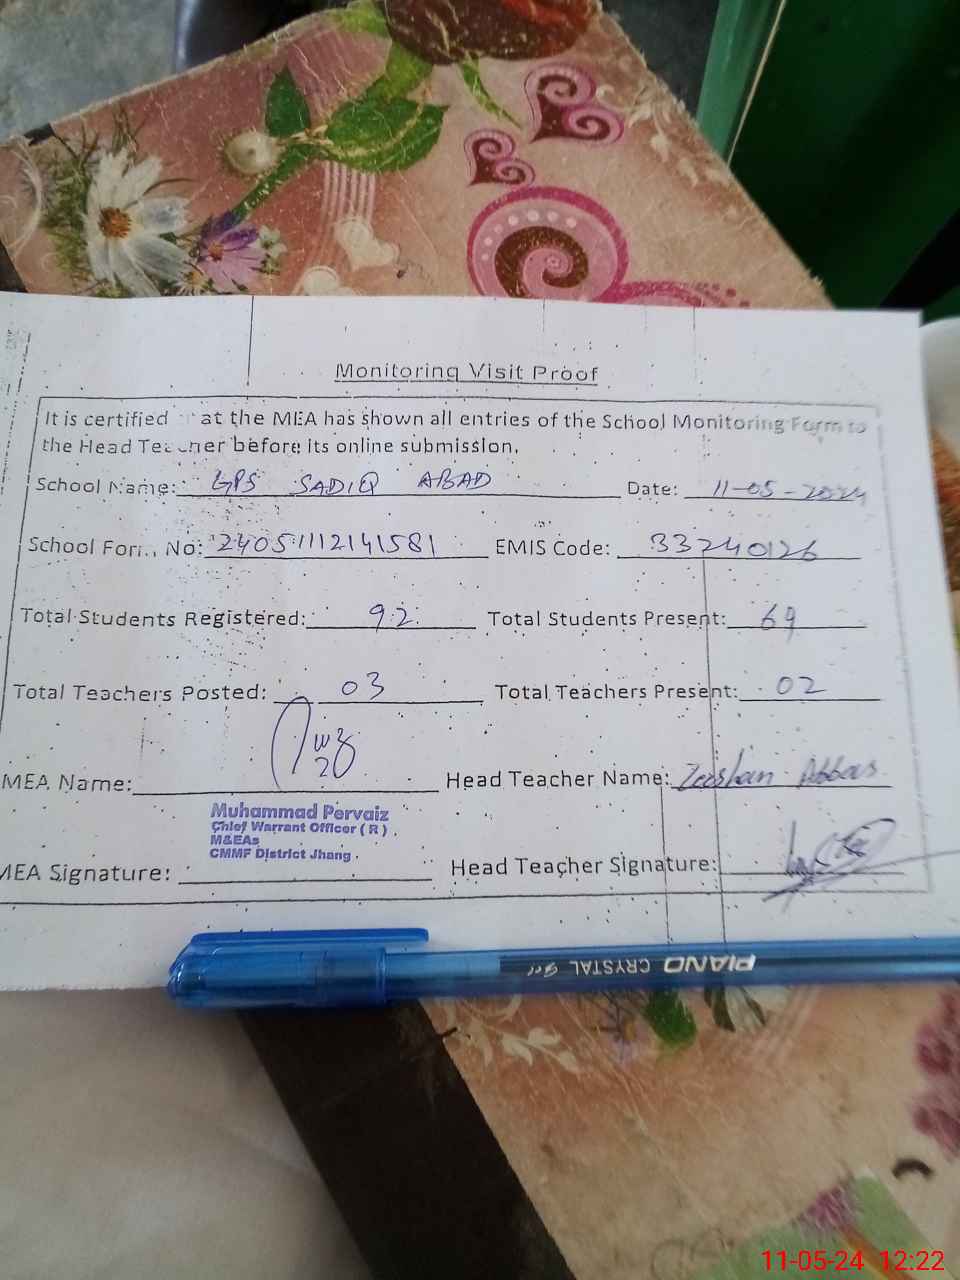 Monitoring Visit Proof
It is certified at the MEA has shown all entries of the School Monitoring Form to
the Head Teacher before its online submission.
School Name: GPS SADIQ ABAD Date: 11-05-2024
School Form No: 24051112141581 EMIS Code: 33240126
Total Students Registered: 92 Total Students Present: 69
Total Teachers Posted: 03 Total Teachers Present: 02
MEA Name: Head Teacher Name: Zeeshan Abbas
Muhammad Pervaiz
Chief Warrant Officer ( R )
M&EAs
CMMF District Jhang
MEA Signature: Head Teacher Signature:
PIANO CRYSTAL Gel
11-05-24 12:22